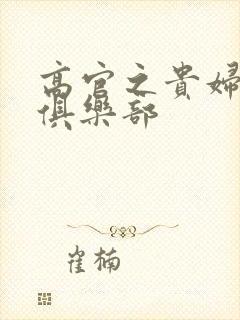 高官之貴婦
俱樂部
崔楠